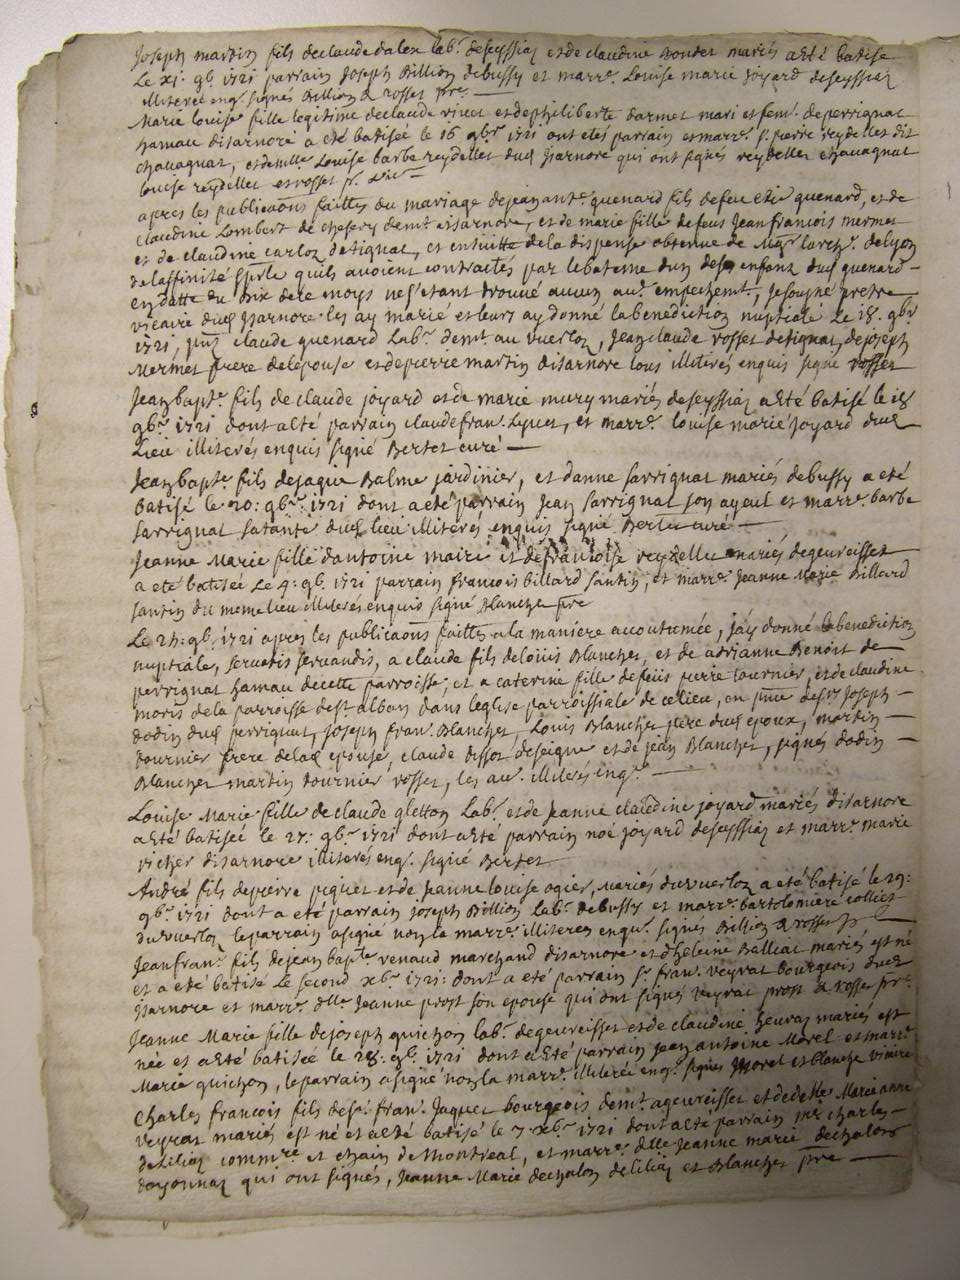 Joseph martin fils de claude dalex lab.r deseyssiaz et de claudine mariés a eté batisé
Le xj: 9b. 1721 parrain Joseph Billion debussy et marr.e Louise marie Joyard deseyssiaz
illiteré enq. signés Billion & rosset p.re
Marie louise fille legitime declaude vivet et dephiliberte darmet mari et fem.e deperrignat
hamau disarnore a eté batisée le 16 9b.re 1721 ont etés parrain et marr.e s.r pierre reydellet dit
chavagnat, et dem.lle Louise barbe reydellet dud Isarnore qui ont signés reydellet chavagnat
louise reydellet et rosset p.r vic.
apres les publicaons faittes du mariage dejean bapt.e quenard fils defeu quenard, et de
claudine Lombert de chesery dem.t a Isarnore, et de marie fille defeus Jeanfrancois mermet
et de claudine carloz detignat, et ensuitte dela dispense obtenue de Mgr larch.e delyon
delaffinité sp.rle quils avoient contractés par lebateme dun des enfant dud quenard
en datte du dix de ce moys ne s'etant trouvé aucun au.e empechem.t, Je sousigné pretre
vicaire dud Isarnore les ay marié et leurs ay donné la benediction nuptiale le 18. 9b.r
1721, p.nts claude quenard Lab.r dem.t au vuerloz, Jeanclaude rosset detignat, de joseph
Mermet frere delepouse et depierre martin disarnore tous illiterés enquis signé rosset
Jean bapt.e fils de claude joyard et de marie mury mariés de seyssiaz a eté batisé le 18
9b.re 1721 dont a eté parrain claude fran. Lyvet, et marr.e louise marie Joyard dud
Lieu illiterés enquis signé Bertet curé
Jean bapt.e fils dejaque Balme jardinier, et danne sarrignat mariés debussy a eté
batisé le 20: 9b.re 1721 dont a eté parrain Jean sarrignat son ayeul et marr.e barbe
sarrignat satante dud lieu illiterés enquis signé Bertet curé
Jeanne Marie fille dantoine maire et defrancoise reydellet mariés degeureisset
a eté batisée Le 4: 9b. 1721 parrain francois billard santin, et marr.e Jeanne Marie Billard
santin du meme lieu illiterés enquis signé blanchet p.re
Le 24: 9b. 1721 apres les publicaons faittes a la maniere accoutumée, j'ay donné la benediction
nuptiale, servatis servandis, a claude fils delouis Blanchet, et de adrianne Benoist de
perrignat hamau decette parroisse, et a caterine fille defeus pierre tournier, et de claudine
moris dela parroisse dest alban dans leglise parroissiale de ce lieu, en p.nce des.r Joseph
dodin dud perrignat, joseph fran. Blanchet, Louis Blanchet pere dud epoux, martin
tournier frere delad epouse, claude dessot deseigne et de jean Blanchet, signés dodin
Blanchet martin tournier rosset, les au. illiterés enq.
Louise Marie fille de claude gletton Lab.r et de Jeanne claudine joyard mariés disarnore
a eté batisée le 27: 9b.re 1721 dont a eté parrain noé joyard deseyssiaz et marr.e marie
richer disarnore illiterés enq. signé Bertet
André fils depierre piquet et de Jeanne louise ogier, mariés duvuerloz a eté batisé le 29:
9b.re 1721 dont a eté parrain joseph Billion lab.r debussy et marr.e bartolomiere colliet
duvuerloz le parrain a signé non la marr.e illiterée enqu. signés Billion & rosset p.r
Jeanfran. fils dejean bap.te renaud marchand disarnore et dheleine Balliat mariés est né
et a eté batisé Le second xb.re 1721: dont a eté parrain s.r fran. veyrat bourgeois dud
Isarnore et marr.e d.lle Jeanne prost son epouse qui ont signés veyrat prost & rosset p.re
Jeanne Marie fille dejoseph quichon lab.r degeureisset et de claudine heuraz mariés est
née et a eté batisée le 28: 9b. 1721 dont a eté parrain Jean antoine Morel et marr.e
Marie quichon, le parrain a signé non la marr.e illiterée enq. signés Morel et blanchet vicaire
Charles francois fils des.r fran. Jaquet bourgeois dem.t ageureisset et dedelle Marie anne
veyrat mariés est né et a eté batisé le 7: xb.re 1721 dont a eté parrain m.re charles
delilia comm.re et chan de Montreal, et marr.e d.lle Jeanne marie dechalon
doyonnaz qui ont signés, Jeanne Marie dechalon deliliaz et Blanchet p.re